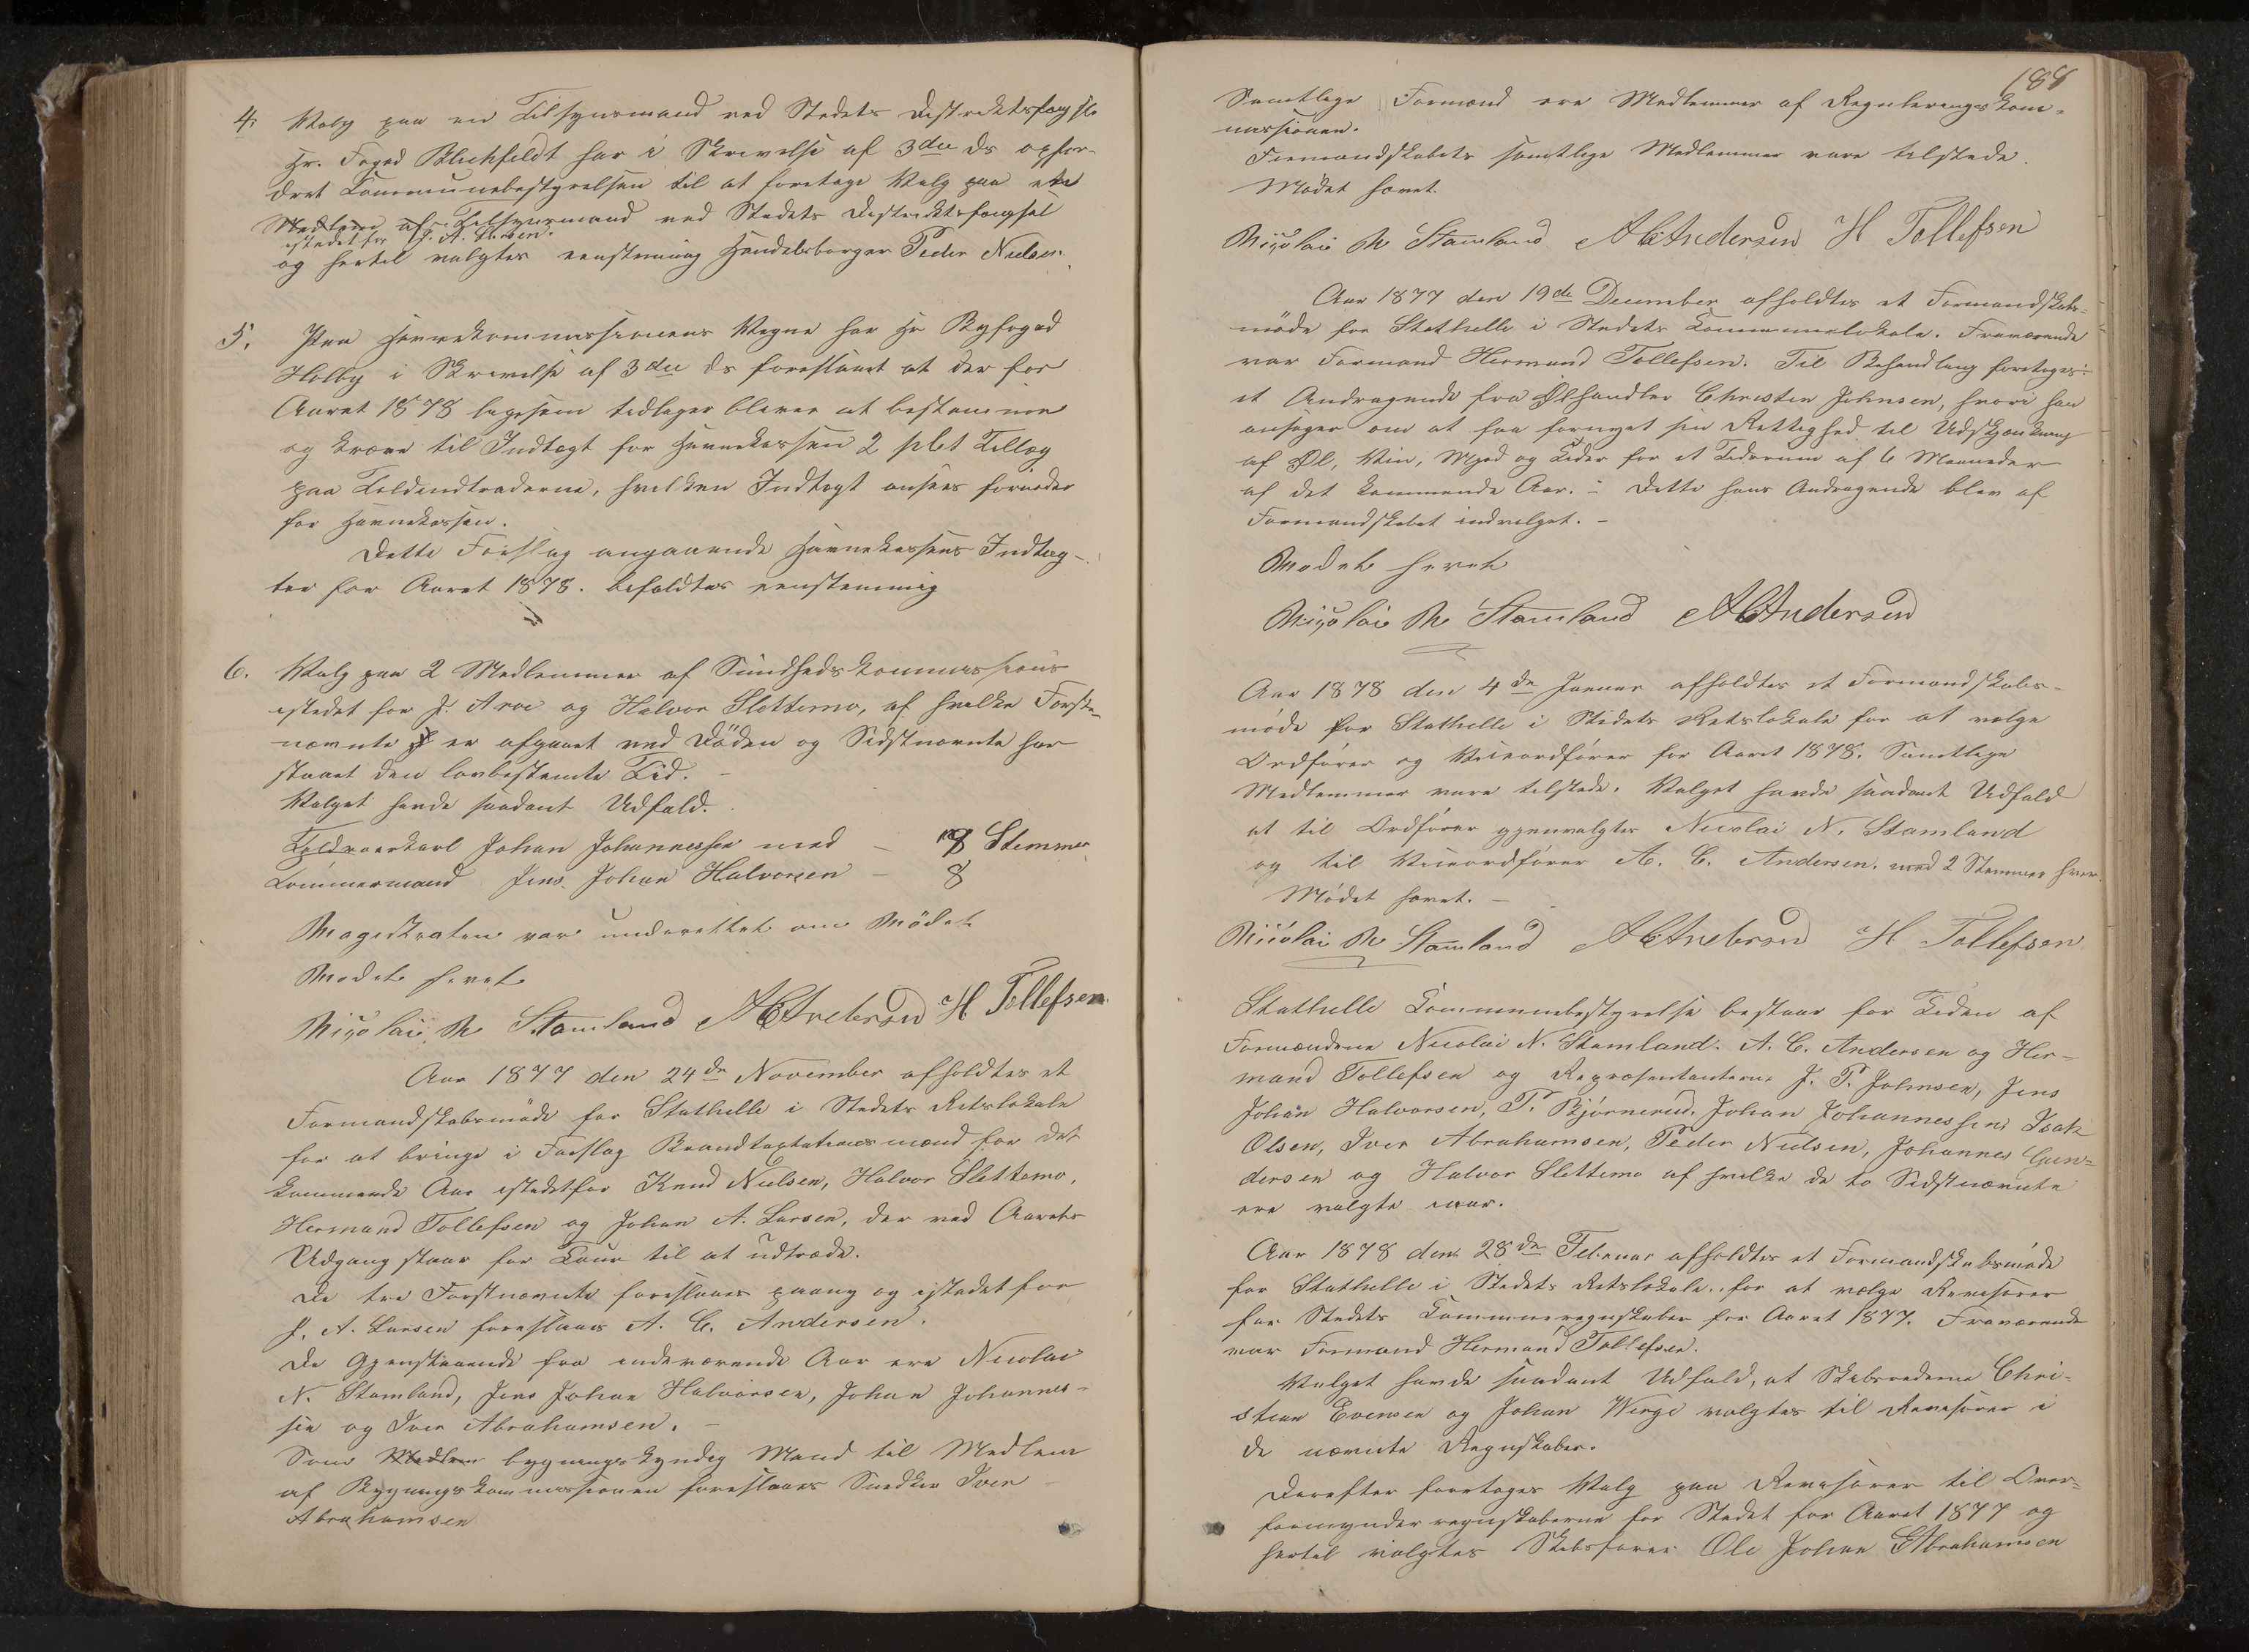 4. Valg paa en Tilsynsmand ved Stedets Distriktsfængsel
Hr. Foged Blichfeldt har i Skrivelse af 3die ds opfor-
dret Communebestyrelsen til at foretage Valg paa en
Medlem af Tilsynsmand ved Stedets Distriktsfængsel
istedet for J. A. Larsen.
og hertil valgtes eenstemmig Handelsborger Peder Nielsen.
5. Paa Havnekommissionens Vegne har Hr Byfoged
Holby i Skrivelse af 3die ds foreslaaet at der for
Aaret 1878 ligesom tidligere bliver at bestemme
og kræve til Indtægt for Havnekassen 2 pCt Tillæg
paa Toldindtraderne, hvilken Indtægt ansees fornøden
for Havnekassen.
Dette Forslag angaaende Havnekassens Indtæg-
ter for Aaret 1878. bifaldtes eenstemmig
6. Valg paa 2 Medlemmer af Sundhedskommissionen
istedet for J. Aroe og Halvor Slettemo, af hvilke Først-
nævnte er afgaaet ved Döden og Sidstnævnte har
staaet den lovbestemte Tid. -
Valget havde saadant Udfald.
Toldroerkarl Johan Johannessen med - 8 Stemmer
Tømmermand Jens Johan Halvorsen - 8
Magistraten var underrettet om Mödet
Mödet hævet
Nicolai N Stamland A C Andersen H Tollefsen
Aar 1877 den 24de November afholdtes et
Formandskabsmöde for Stathelle i Stedets Retslokale
for at bringe i Forslag Brandtaxtationsmænd for det
kommende Aar istedetfor Knud Nielsen, Halvor Slettemo,
Hermand Tollefsen og Johan A. Larsen, der ved Aarets
Udgang staar for Tour til at udtræde.
De tre Førstnævnte foreslaaes paany og istedet for
J. A. Larsen foreslaaes A. C. Andersen.
De Gjenstaaende fra indeværende Aar ere Nicolai
N. Stamland, Jens Johan Halvorsen, Johan Johannes-
sen og Iver Abrahamsen. -
Som Medlem bygningskyndig Mand til Medlem
af Bygningskommissionen foreslaaes Snedker Iver
Abrahamsen
188
Samtlige Formænd ere Medlemmer af Reguleringskom-
missionen.
Formandskabets samtlige Medlemmer vare tilstede.
Mödet hævet.
Nicolai N Stamland A C Andersen H Tollefsen
Aar 1877 den 19de December afholdtes et Formandskabs-
möde for Stathelle i Stedets Communelokale. Fraværende
var Formand Hermand Tollefsen. Til Behandling foretoges:
et Andragende fra Ølhandler Christen Johnsen, hvori han
ansøger om at faa fornyet sin Rettighed til Udskjænkning
af Øl, Vin, Mjød og Cider for et Tidsrum af 6 Maaneder
af det kommende Aar. - Dette hans Andragende blev af
Formandskabet indvilget. -
Mödet hævet
Nicolai N Stamland A C Andersen
Aar 1878 den 4de Januar afholdtes et Formandskabs-
möde for Stathelle i Stedets Retslokale for at vælge
Ordfører og Viceordfører for Aaret 1878. Samtlige
Medlemmer vare tilstede. Valget havde saadant Udfald
at til Ordfører gjenvalgtes Nicolai N. Stamland
og til Viceordfører A. C. Andersen. med 2 Stemmer hver.
Mödet hævet. -
Nicolai N Stamland A C Andersen H Tollefsen
Stathelle Communebestyrelse bestaar for Tiden af
Formændene Nicolai N. Stamland. A. C. Andersen og Her-
mand Tollefsen og Repræsentanterne J. P. Johnsen, Jens
Johan Halvorsen, P. Bjørnerud, Johan Johannessen, Isak
Olsen, Iver Abrahamsen, Peder Nielsen, Johannes Gun-
dersen og Halvor Slettemo af hvilke de to Sidstnævnte
ere valgte iaar.
Aar 1878 den 28de Februar afholdtes et Formandskabsmöde
for Stathelle i Stedets Retslokale, for at vælge Revisorer
for Stedets Communeregnskaber for Aaret 1877. Fraværende
var Formand Hermand Tollefsen.
Valget havde saadant Udfald, at Skibsrederne Chri-
stian Evensen og Johan Wirge valgtes til Revisorer i
de nævnte Regnskaber.
Derefter foretoges Valg paa Revisorer til Over-
formynderregnskaberne for Stedet for Aaret 1877 og
hertil valgtes Skibsfører Ole Johan Abrahamsen